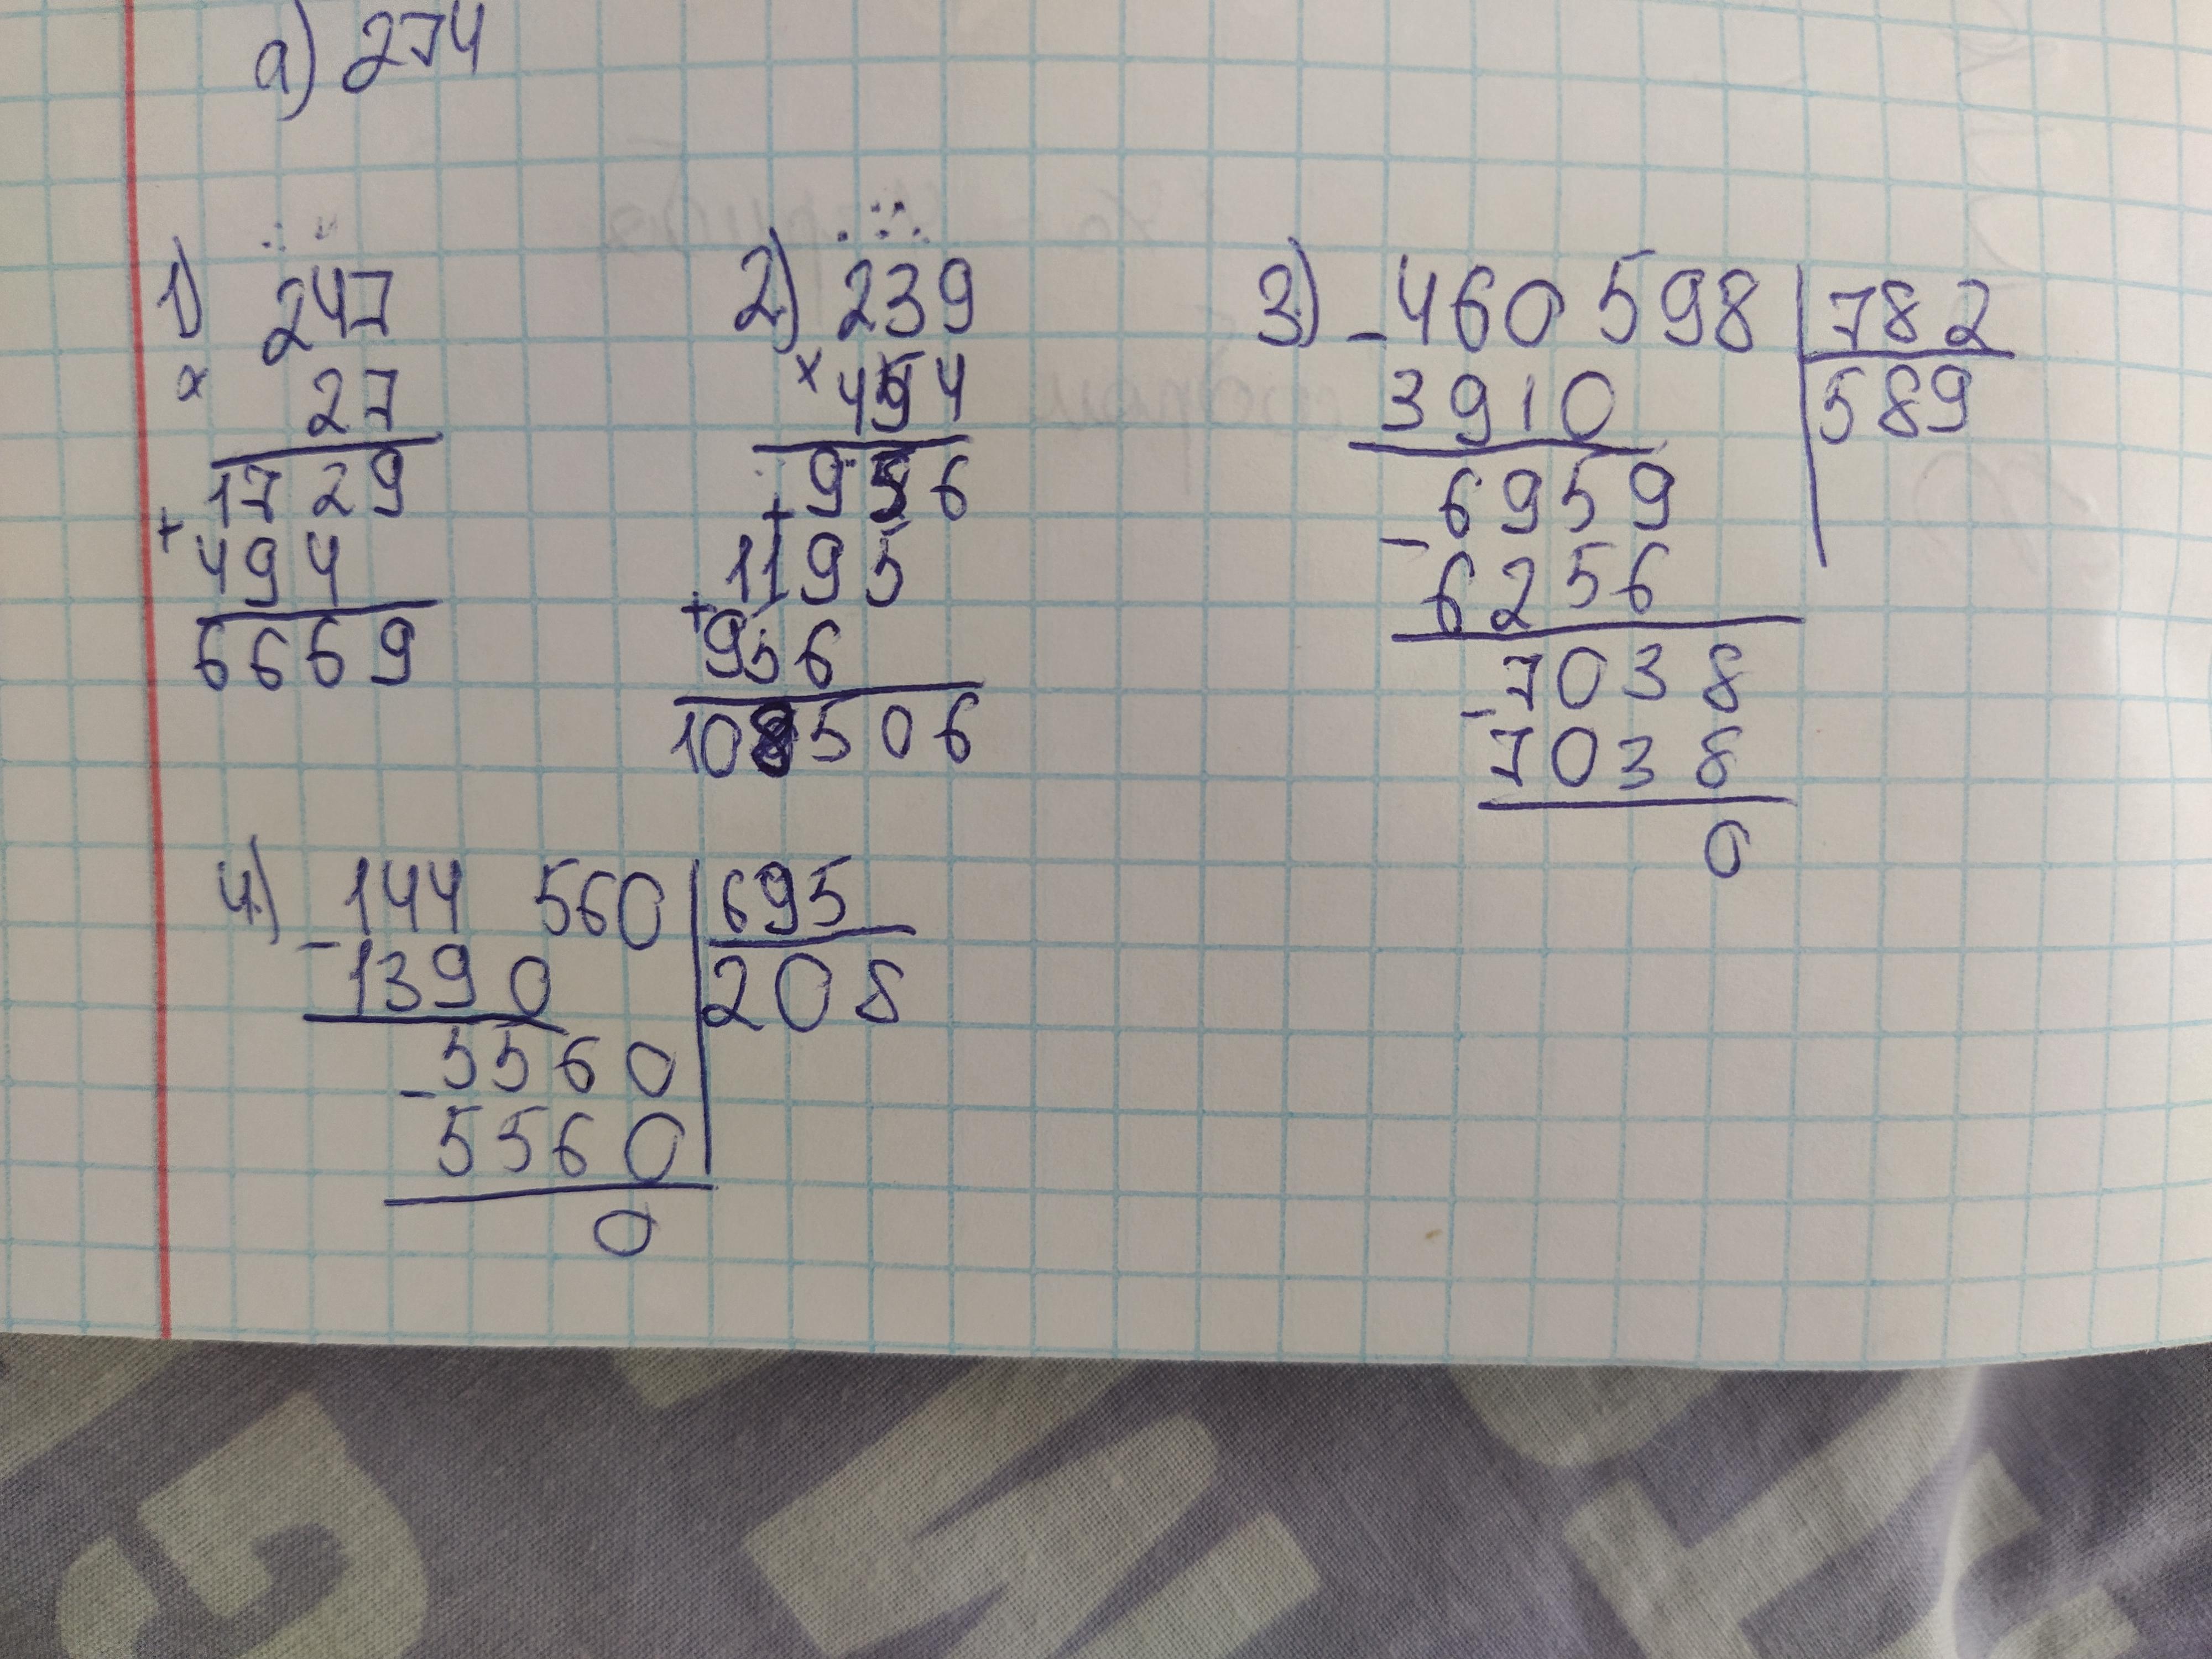 а) 274
1) 247
× 27
1729
+ 494
6669
2) 239
× 454
956
+ 1195
+ 956
108506
3) - 460 598 | 782
3910 | 589
- 6959
6256
- 7038
7038
0
4) - 144 560 | 695
1390 | 208
- 5560
5560
0